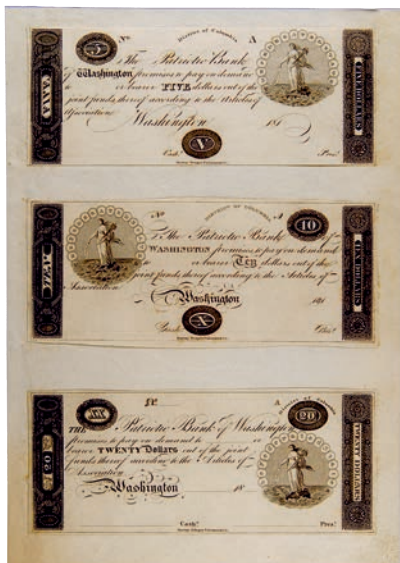 5
No.
District of Columbia
A
The Patriotic Bank
of Washington promises to pay on demand
or bearer FIVE dollars out of the
joint funds thereof according to the Articles of
Association
Washington
181
V
Cash.r
Pres.t
FIVE DOLLARS
No
DISTRICT OF COLUMBIA
A
10
The Patriotic Bank of
WASHINGTON promises to pay on demand
or bearer Ten dollars out of the
joint funds thereof according to the Articles of
Association
Washington
181
X
Cash.r
Pres.t
TEN
TEN DOLLARS
XX
No.
A
District of Columbia
20
THE Patriotic Bank of Washington
promises to pay on demand to or
bearer TWENTY Dollars out of the joint
funds thereof according to the Articles of
Association
Washington
18
Cash.r
Pres.t
20
TWENTY DOLLARS